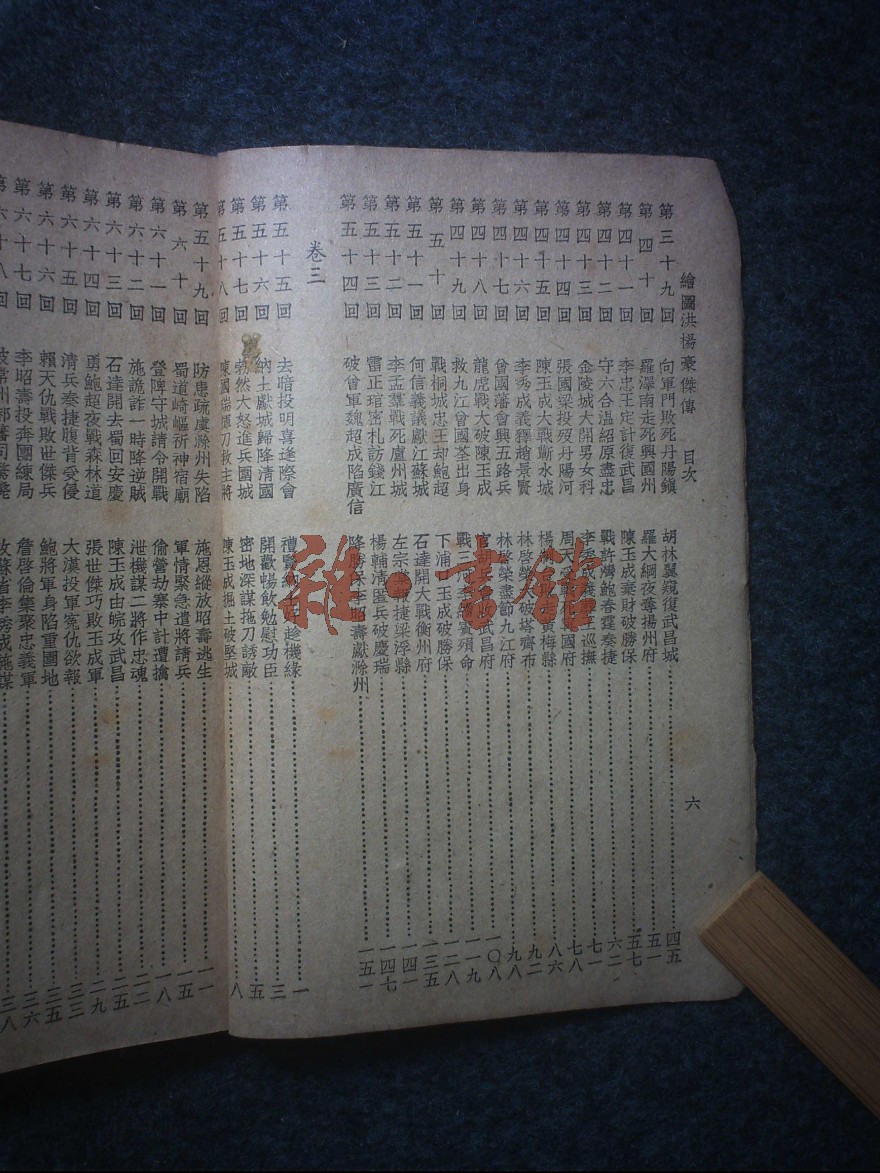 繪圖洪楊豪傑傳 目次 六
第三十九回 向軍門敗死丹陽鎭 胡林翼規復武昌城 四五
第四十回 羅澤南走死興國州 羅大綱夜奪揚州府 五一
第四十一回 李忠王定計復武昌 陳玉成棄財破勝保 五七
第四十二回 守六合温紹原盡忠 戰許灣鮑春霆奏捷 六二
第四十三回 金陵城大開男女科 李秀成 巡撫 七一
第四十四回 張國梁投歿丹陽河 周天受 國府 七八
第四十五回 陳玉成大戰蘄水城 楊 黃梅縣 八六
第四十六回 李秀成義釋趙景賢 林啓榮 破塔齊布 九二
第四十七回 曾國藩會興五路兵 林啓榮盡節九江府 九八
第四十八回 龍虎戰大破陳玉成 官 武昌府 一〇八
第四十九回 救九江曾國荃出身 戰三河李續賓殞命 一一九
第五十回 戰桐城忠王却鮑超 下浦口玉成破勝保 一二八
第五十一回 何信義義獻江蘇城 石達開大戰衡州府 一三五
第五十二回 李孟羣戰死廬州城 左宗棠 捷梁浮縣 一四一
第五十三回 雷正琯密札訪錢江 楊輔清匿兵破慶瑞 一四七
第五十四回 破曾軍魏超成陷廣信 降勝保李昭壽獻滁州 一五一
卷三
第五十五回 去暗投明喜逢際會 禮賢 士 趁機緣 一
第五十六回 納土獻城歸降清國 開歡暢飲勉慰功臣 五
第五十七回 勃然大怒進兵圍城 密地深謀拖刀誘敵 八
第五十八回 陳國瑞 刀救主將 陳玉成掘土破堅城
第五十九回 防患疏虞滁州失陷 施恩縱放昭壽逃生 一一
第六十回 蜀道崎嶇祈神宿廟 軍情緊急遣將請兵 一五
第六十一回 登陴守城請令開戰 偷營劫寨中計遭擒 一八
第六十二回 施詭詐一時降逆賊 泄機謀二將作忠魂 二二
第六十三回 石達開去蜀回安慶 陳玉成由皖攻武昌 二五
第六十四回 勇鮑超夜戰森林道 張世傑巧敗玉成軍 二九
第六十五回 清兵奏捷腹背受優 大漢投軍寃仇欲報 三二
第六十六回 賴天仇戰敗世傑兵 鮑將軍身陷重圍地 三五
第六十七回 李昭壽投奔團練局 詹啓倫集聚忠義軍 三六
第六十八回 常州 省李秀成施謀 三八
雜·書館